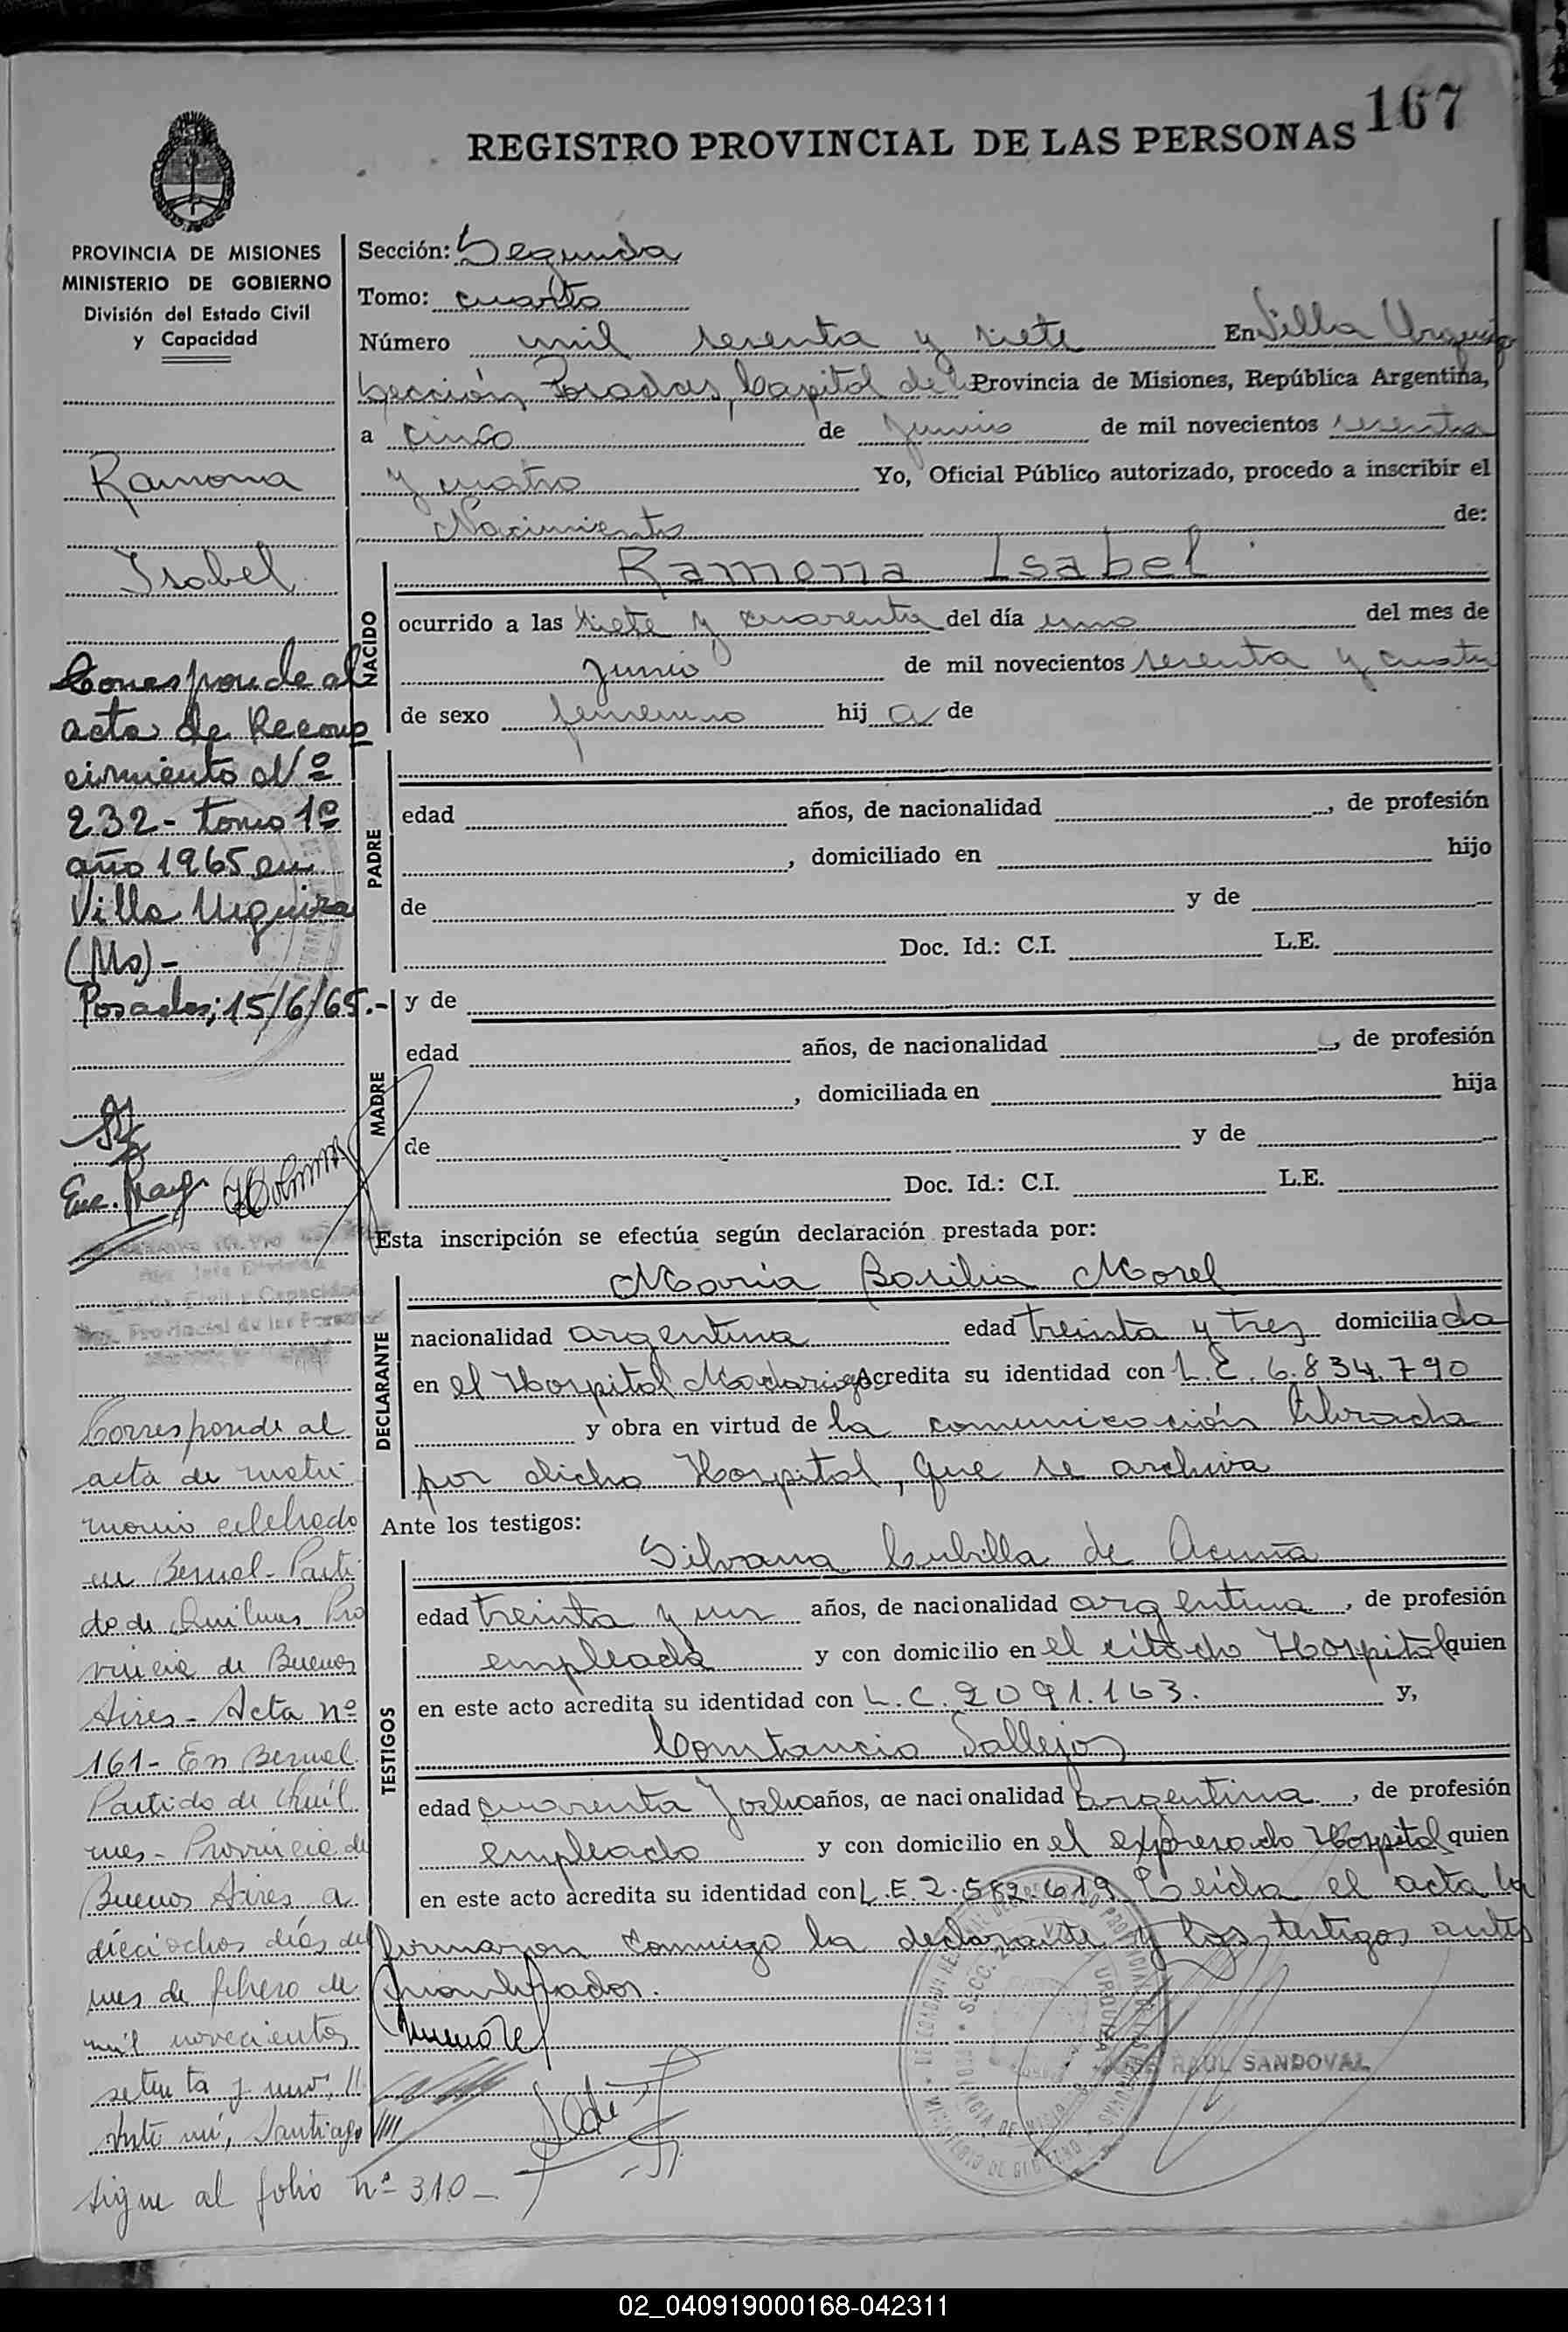 167
REGISTRO PROVINCIAL DE LAS PERSONAS
PROVINCIA DE MISIONES
MINISTERIO DE GOBIERNO
División del Estado Civil
y Capacidad
Ramona
Isabel
Corresponde al
acta de Recono
cimiento Nº
232- tomo 1º
año 1965 en
Villa Urquiza
(Ms)-
Posadas; 15/6/65.-
Corresponde al
acta de matri
monio celebrado
en Bernal- Parti
do de Quilmes Pro
vincia de Buenos
Aires- Acta nº
161- En Bernal
Partido de Quil
mes- Provincia de
Buenos Aires a
dieciochos días del
mes de febrero de
mil novecientos
setenta y uno. //
Ante mí, Santiago ////
sigue al folio nº 310-
Sección: Segunda
Tomo: cuarto
Número mil sesenta y siete En Villa Urquiza
Sección Posadas, Capital de la Provincia de Misiones, República Argentina,
a cinco de junio de mil novecientos sesenta
y cuatro Yo, Oficial Público autorizado, procedo a inscribir el
Nacimiento de:
NACIDO
Ramona Isabel
ocurrido a las siete y cuarenta del día uno del mes de
junio de mil novecientos sesenta y cuatro
de sexo femenino hij a de
PADRE
edad años, de nacionalidad , de profesión
, domiciliado en hijo
de y de
Doc. Id.: C.I. L.E.
MADRE
y de
edad años, de nacionalidad , de profesión
, domiciliada en hija
de y de
Doc. Id.: C.I. L.E.
Esta inscripción se efectúa según declaración prestada por:
DECLARANTE
María Basilia Morel
nacionalidad argentina edad treinta y tres domicilia da
en el Hospital Madariaga Acredita su identidad con L.E. 6.834.790
y obra en virtud de la comunicación librada
por dicho Hospital, que se archiva
Ante los testigos:
TESTIGOS
Silvana Cubilla de Acuña
edad treinta y un años, de nacionalidad argentina, de profesión
empleada y con domicilio en el citado Hospital quien
en este acto acredita su identidad con L.C. 2091.163. y,
Constancio Vallejos
edad cuarenta y ocho años, de nacionalidad argentina, de profesión
empleado y con domicilio en el expresado Hospital quien
en este acto acredita su identidad con L.E. 2.582.619 Leída el acta la
firmaron conmigo la declarante y los testigos antes
nombrados.
RAUL SANDOVAL
02_040919000168-042311